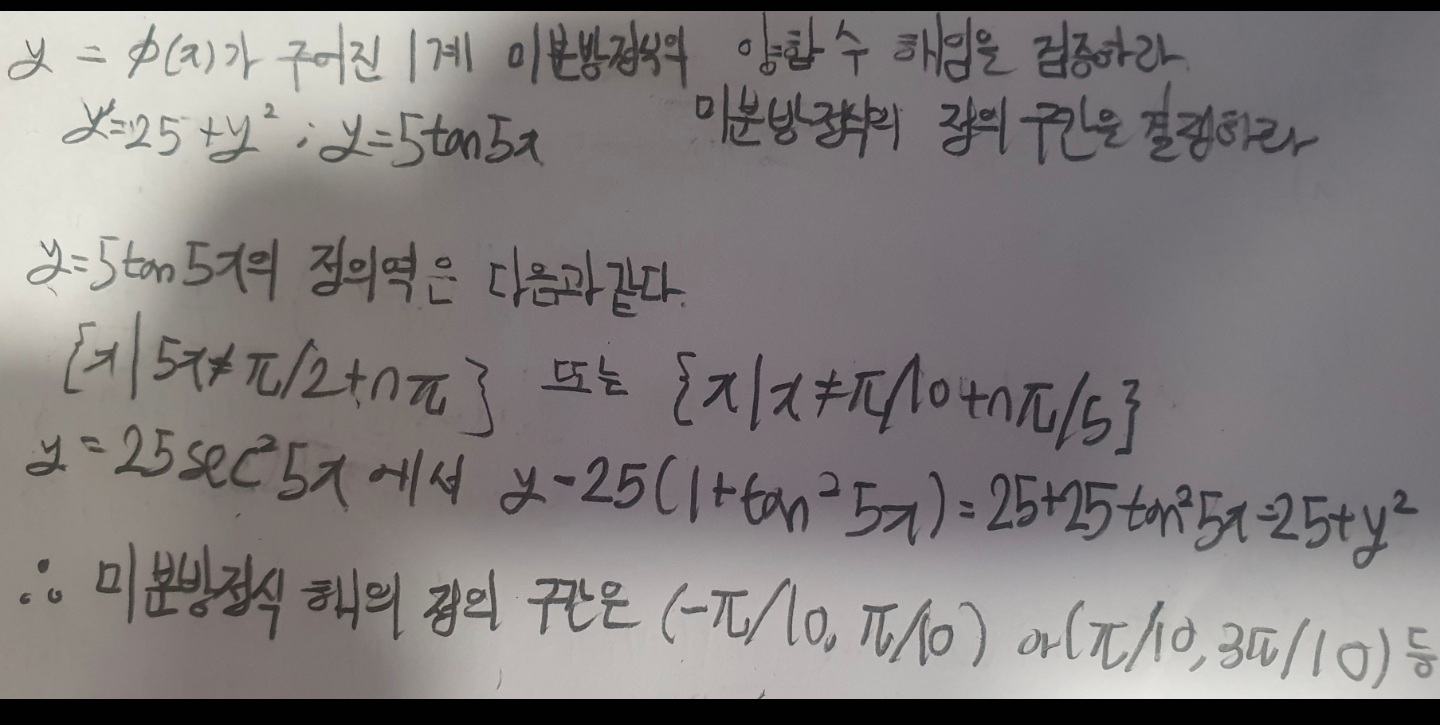 y = φ(x)가 주어진 1계 미분방정식의 양함수 해임을 검증하라.
y'=25+y²; y=5tan5x 미분방정식의 정의 구간을 결정하라
y=5tan5x의 정의역은 다음과 같다.
{x|5x≠π/2+nπ} 또는 {x|x≠π/10+nπ/5}
y=25sec²5x에서 y=25(1+tan²5x)=25+25tan²5x=25+y²
∴ 미분방정식 해의 정의 구간은 (-π/10, π/10) or(π/10, 3π/10) 등